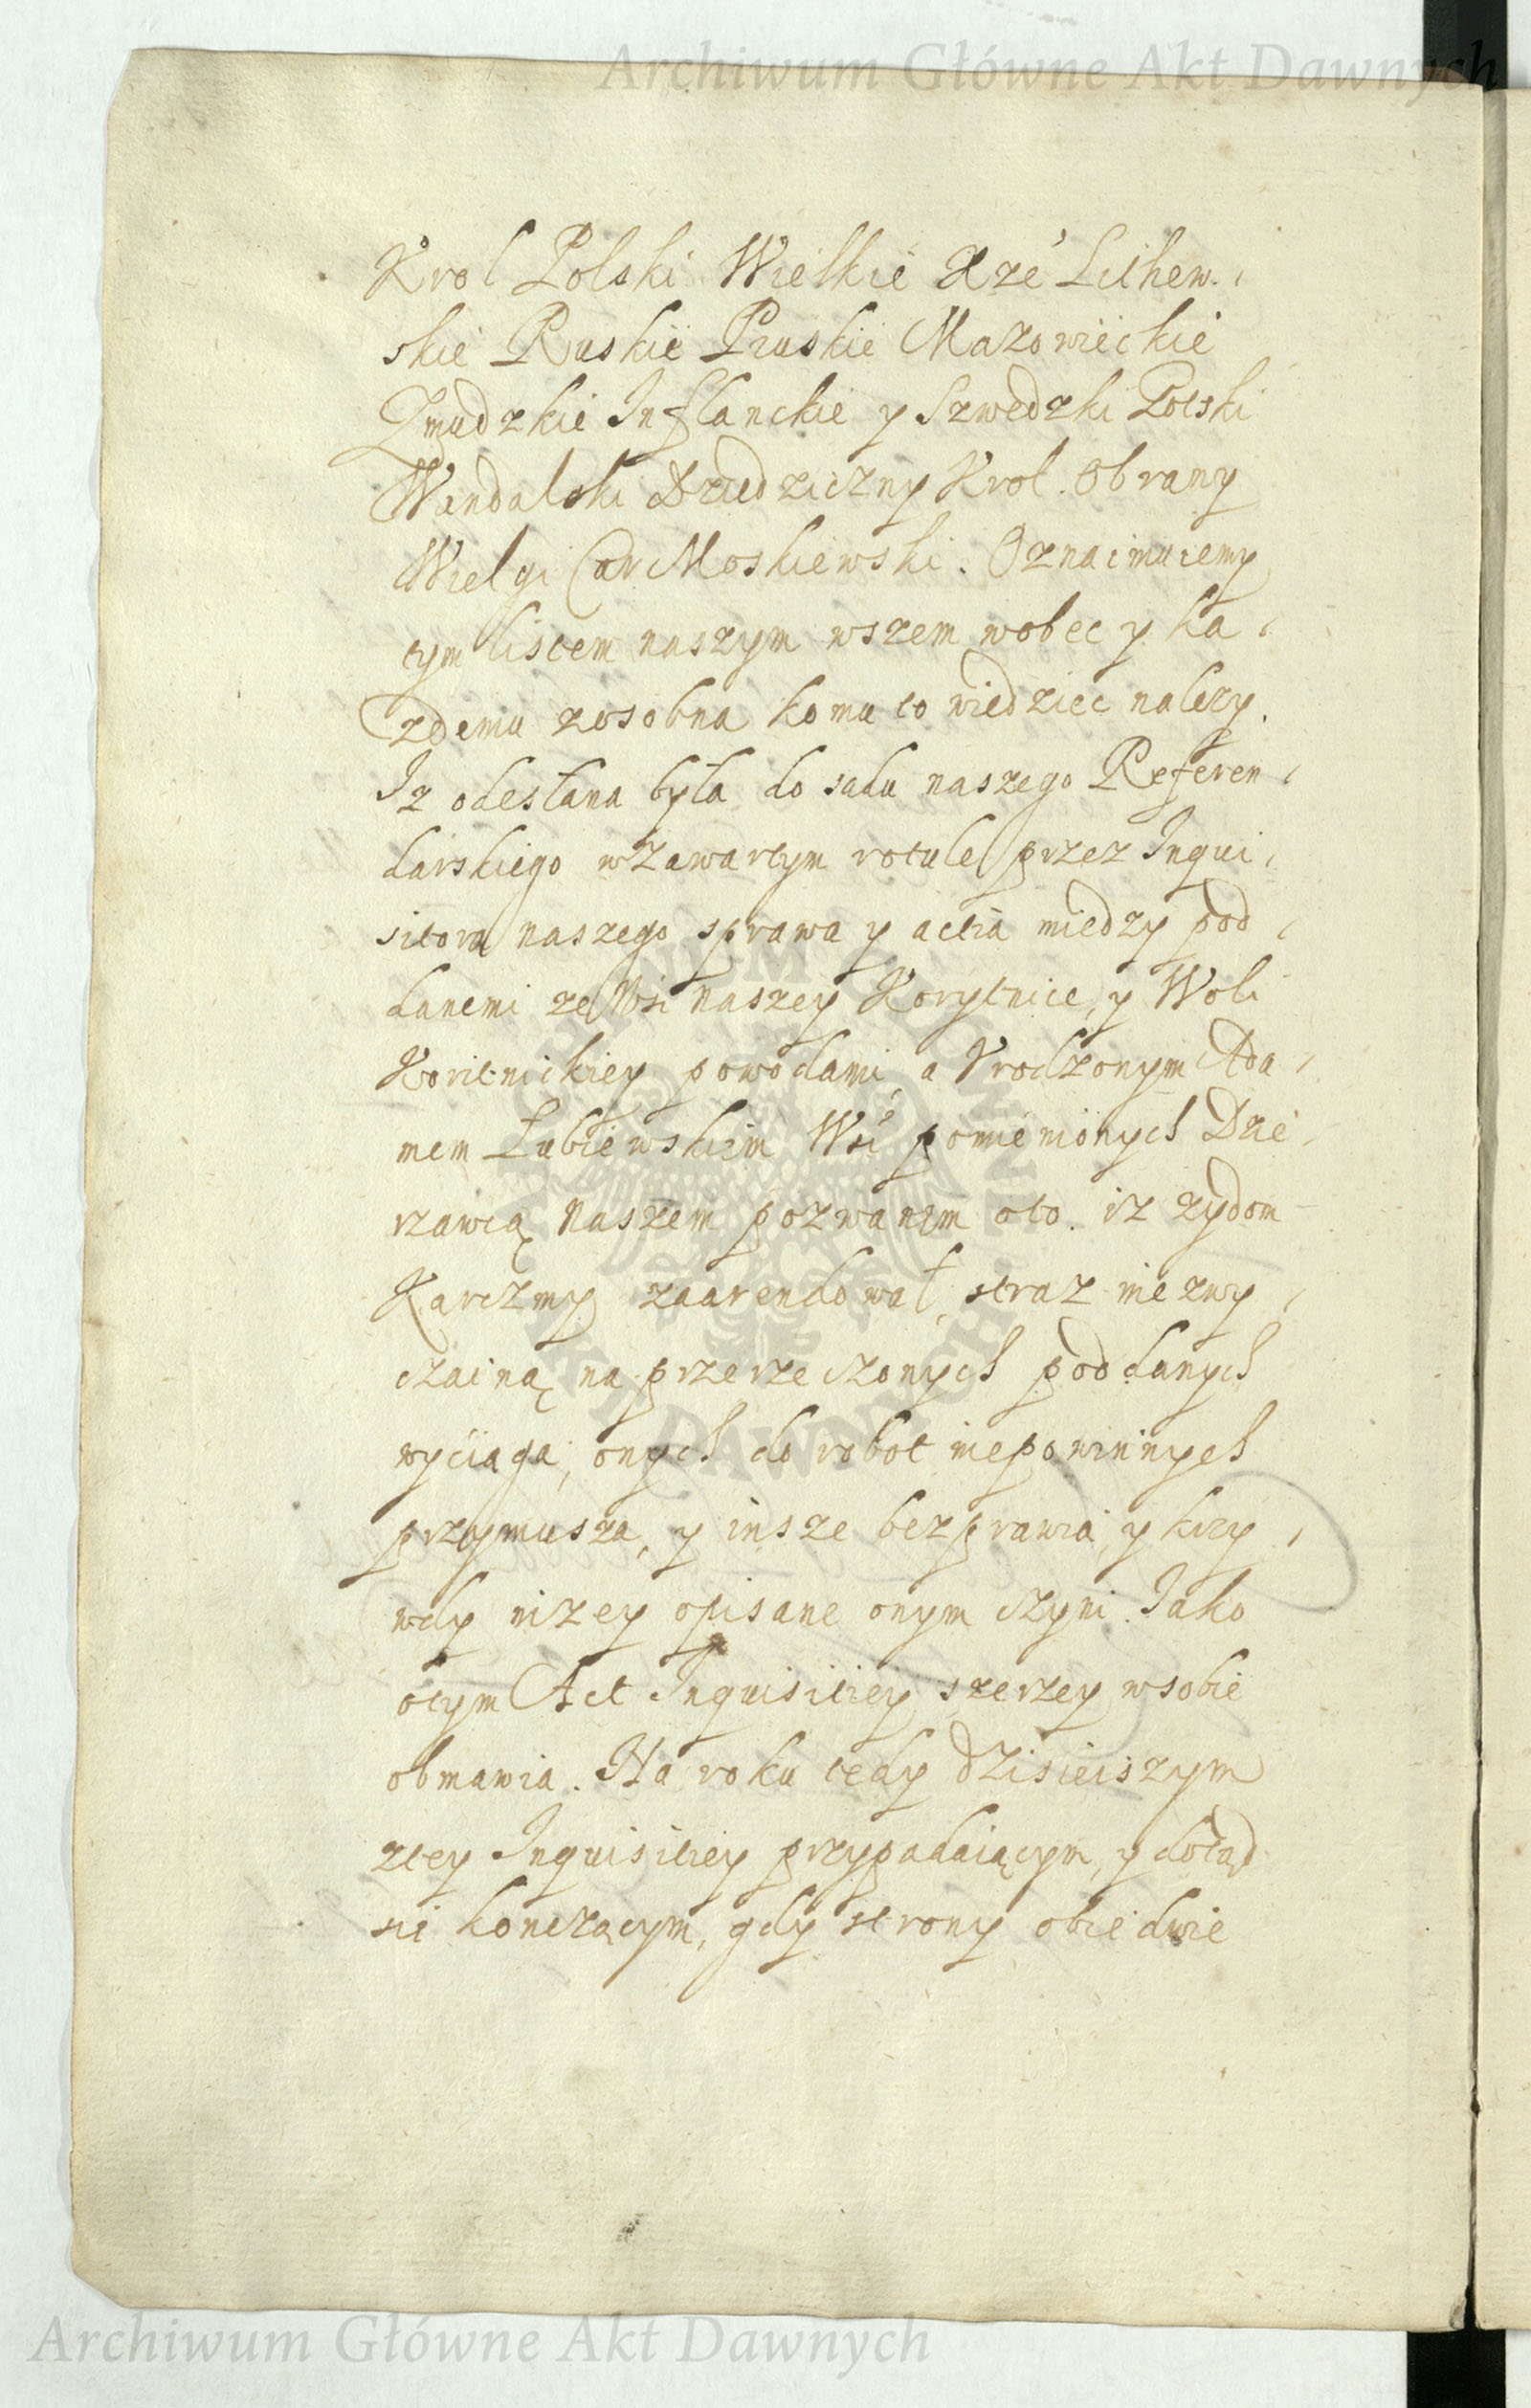 Archiwum Główne Akt Dawnych
Krol Polski Wielkie Xże Lithew
skie Ruskie Pruskie Mazowieckie
Zmudzkie Inflanckie y Szwedzki Gotski
Wandalski Dziedziczny Krol. Obrany
Wielgi Car Moskiewski. Oznaimuiemy
tym listem naszym wszem wobec y ka
zdemu zosobna komu to wiedziec nalezy.
Iz odesłana była do sadu naszego Referen
darskiego wzawartym rotule przez Inqui
sitora naszego sprawa y actia miedzy pod
danemi ze Wsi naszey Korytnice, y Woli
Koritnickiey powodami, a Vrodzonym Ada
mem Łubiewskim Wsi pomienionych Dzie
rzawcą naszem pozwanem oto. iz zydom
Karczmy zaarendował, straz niezwy
czainą na przerzeczonych poddanych
wyciąga, onych do robot niepowinnych
przymusza, y insze bezprawia, y krzy
wdy nizey opisane onym czyni. Iako
otym Act Inquisitiey szerzey wsobie
obmawia. Na roku tedy dzisieiszym
ztey Inquisitiey przypadaiącym, y dotąd
sie konczącym, gdy strony obiedwie
Archiwum Główne Akt Dawnych